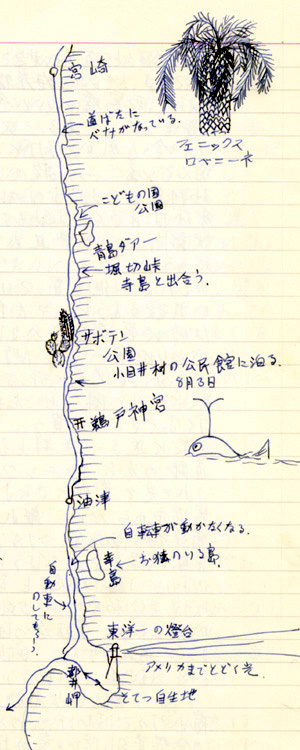 宮崎
道ばたに
バナナがなっている.
フェニックス
ロベニー木
こどもの国
公園
青島ダアー
堀切峠
寺島と出合う.
サボテン
公園
小目井村の公民館に泊る.
8月3日
鵜戸神宮
油津
自転車が動かなくなる.
幸島
お猿のいる島.
自動車に
のしてもらう.
東洋一の燈台
アメリカまでとどく光.
都井岬
そてつ自生地